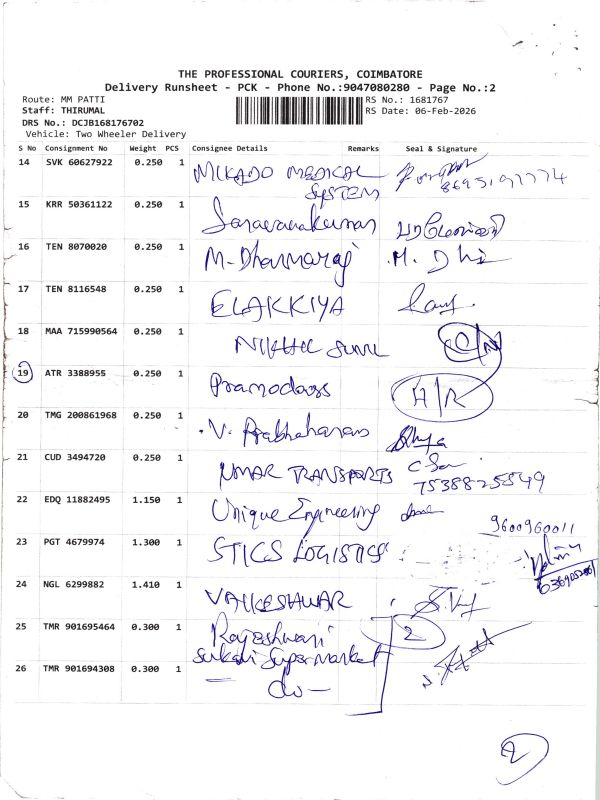 THE PROFESSIONAL COURIERS, COIMBATORE
Delivery Runsheet - PCK - Phone No.:9047080280 - Page No.:2
Route: MM PATTI
RS No.: 1681767
Staff: THIRUMAL
RS Date: 06-Feb-2026
DRS No.: DCJB168176702
Vehicle: Two Wheeler Delivery
S No Consignment No Weight PCS Consignee Details Remarks Seal & Signature
14 SVK 60627922 0.250 1 MIKADO MEDICAL
SYSTEM 8695197774
15 KRR 50361122 0.250 1 Saravanakumar
16 TEN 8070020 0.250 1 M-Dharmaraj M. Dhi
17 TEN 8116548 0.250 1 ELAKKIYA
18 MAA 715990564 0.250 1 NIKHIL SUNIL C/N
19 ATR 3388955 0.250 1 Pramodass A/R
20 TMG 200861968 0.250 1 V. Prabhaharan
21 CUD 3494720 0.250 1 UMAR TRANSPORTS
7538825549
22 EDQ 11882495 1.150 1 Unique Engineering
9600960011
23 PGT 4679974 1.300 1 STICS LOGISTICS
24 NGL 6299882 1.410 1 VALKESHWAR
25 TMR 901695464 0.300 1 Rajeshwari 2
Sukati Supermarket
26 TMR 901694308 0.300 1 — do —
2